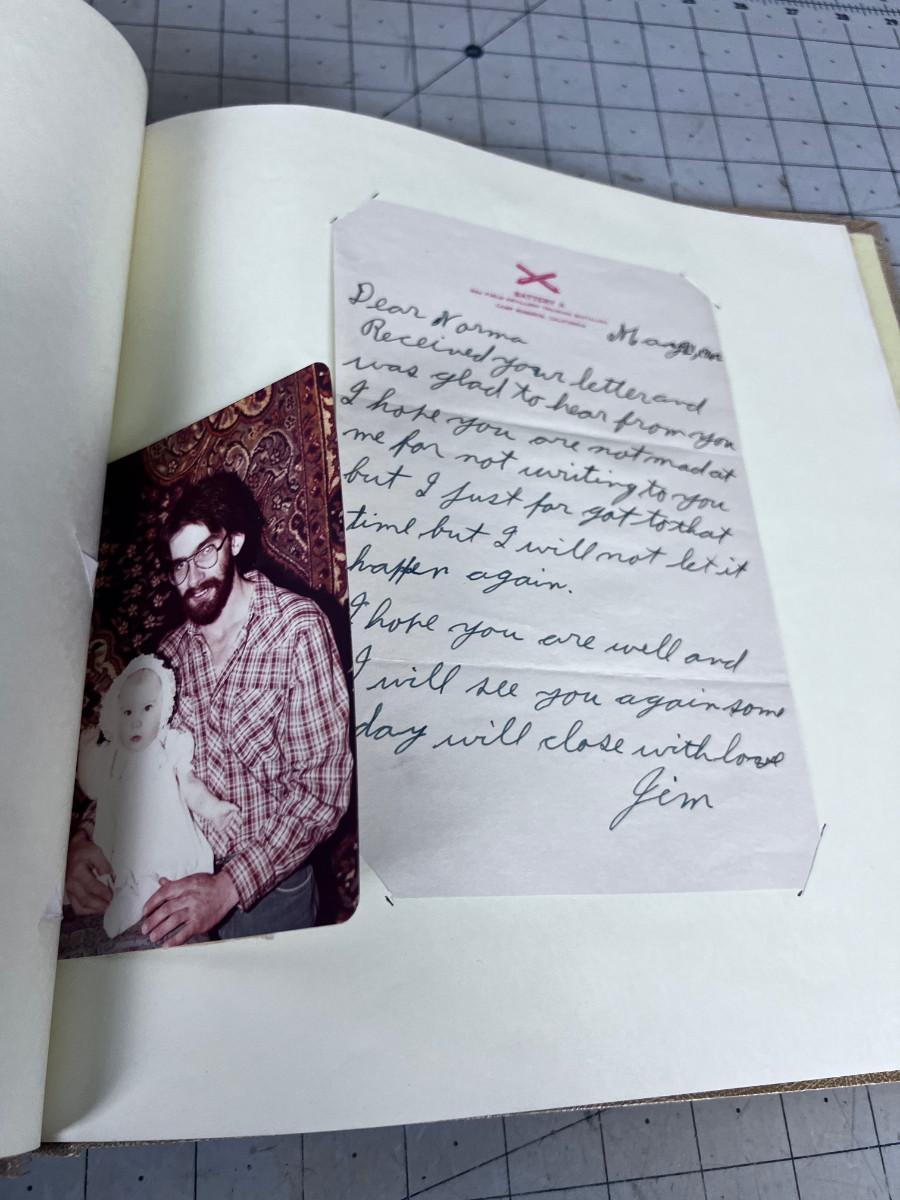 BATTERY A
FIELD ARTILLERY TRAINING BATTALION
CAMP ROBERTS, CALIFORNIA
Dear Norma
May
Received your letter and
was glad to hear from you
I hope you are not mad at
me for not writing to you
but I just for got to that
time but I will not let it
happen again.
I hope you are well and
I will see you again some
day will close with love
Jim
27
28
29